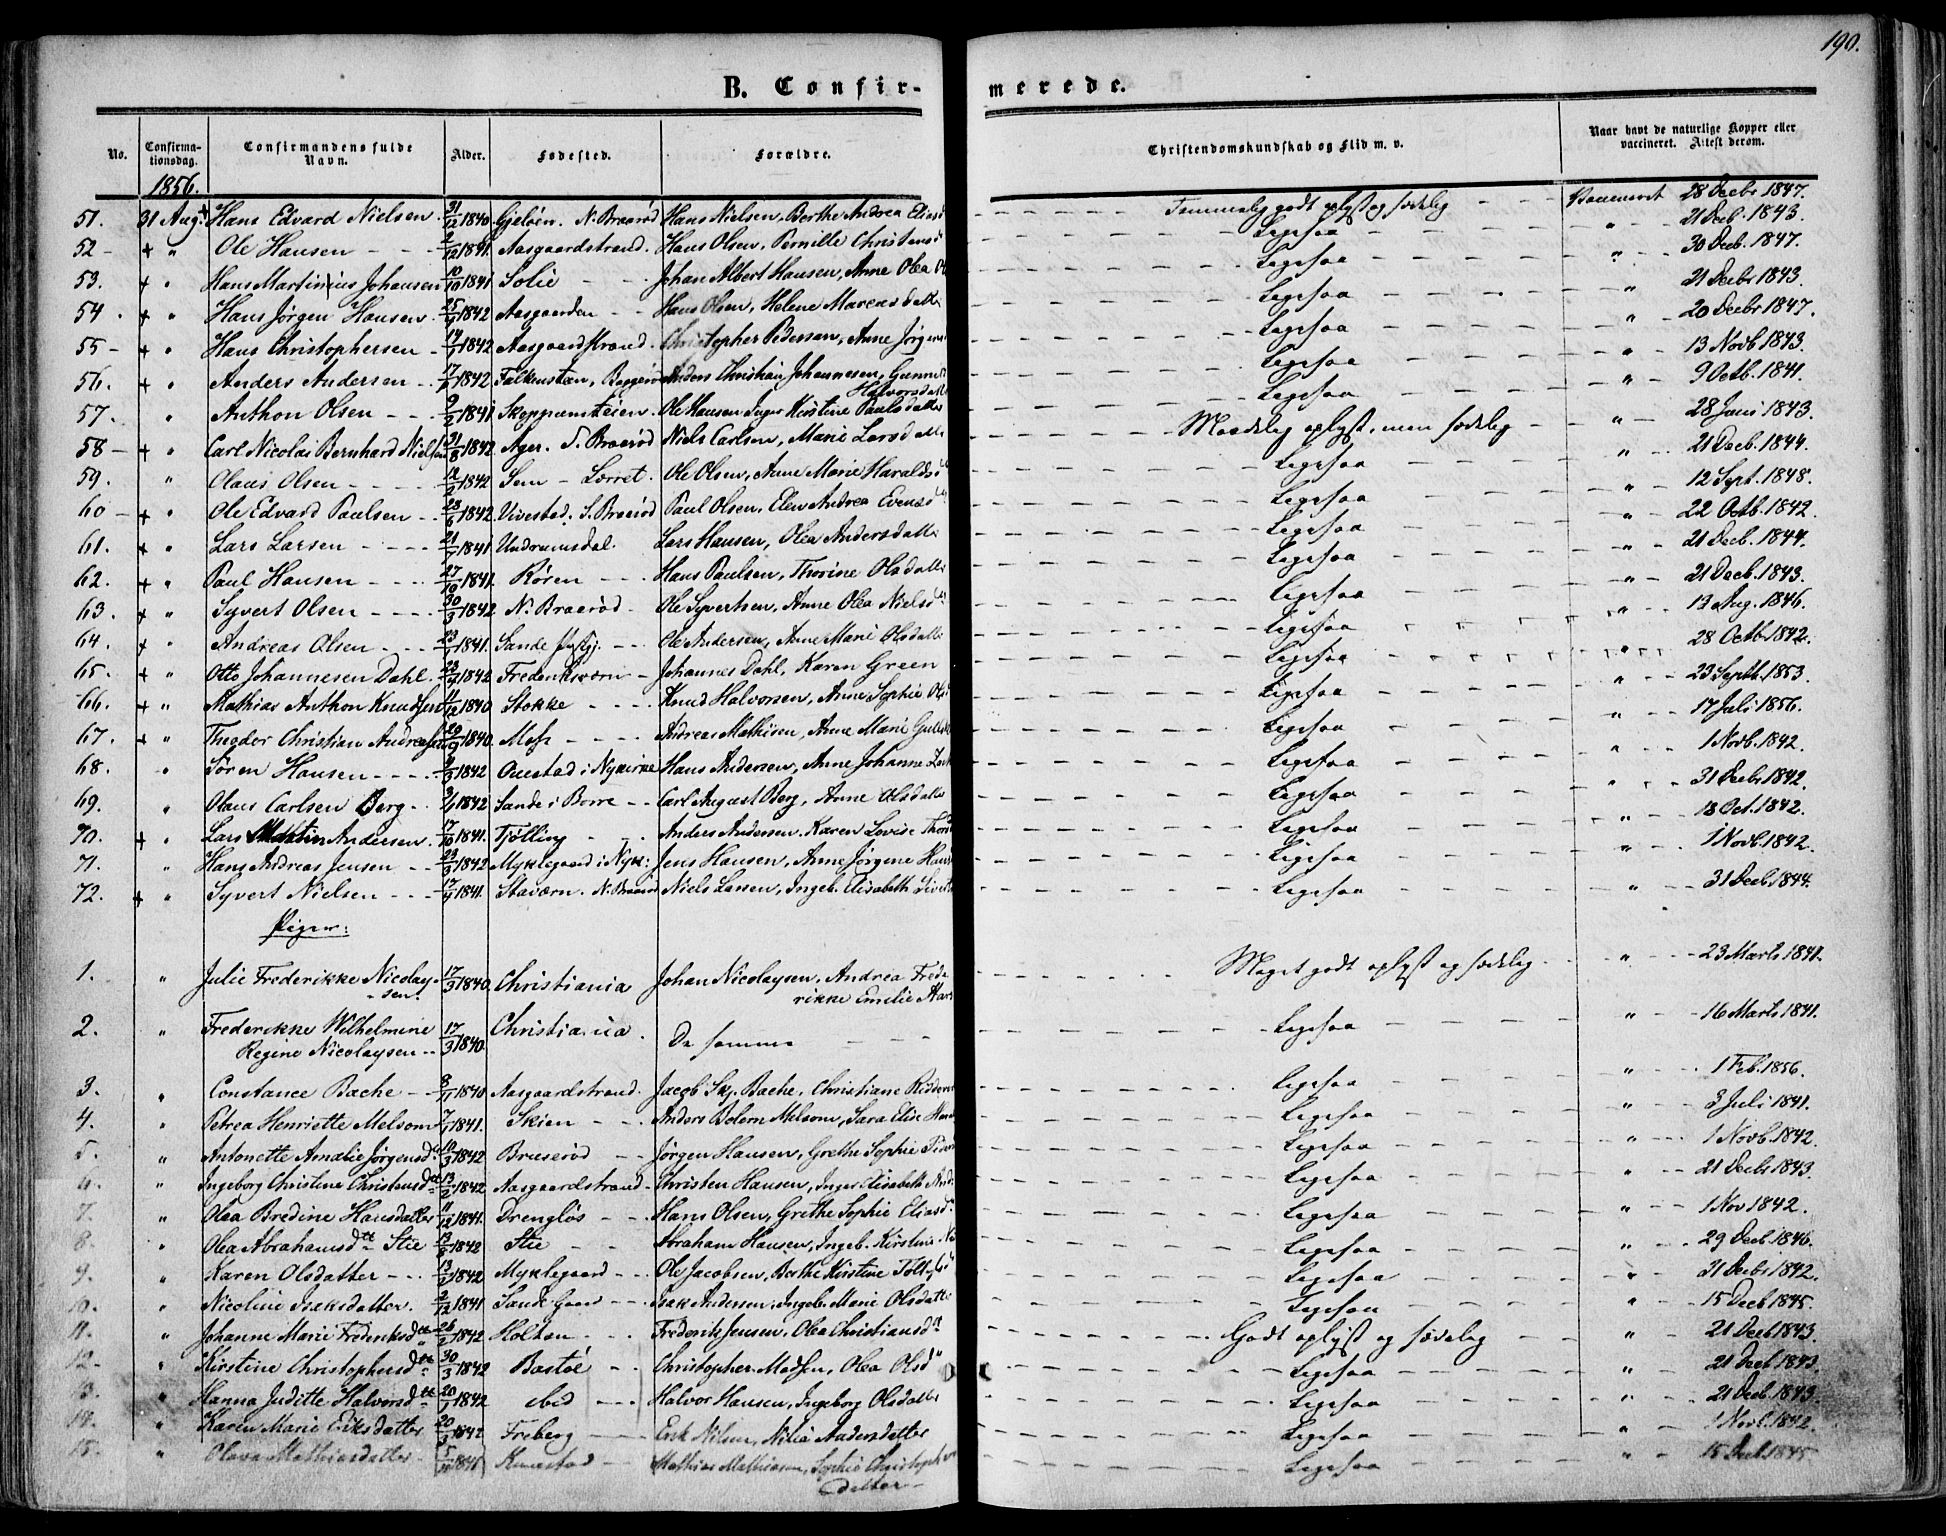 190.
B. Confirmerede.
No. Confirmationsdag. Confirmandens fulde Navn. Alder. Fødested. Forældre. Christendomskundskab og Flid m. v. Naar havt de naturlige Kopper eller vaccineret. Attest derom.
1856.
51. 31 Aug. Hans Edvard Nielsen 31/12 1840 Gjeløen. N. Braarød Hans Nielsen, Berthe Andrea Eliasd Temmelig godt oplyst og sædelig Vaccineret 28 Decbr 1847.
52 – + " Ole Hansen 2/12 1841. Aasgaardstrand. Hans Olsen, Pernille Christensd Ligesaa " 21 Decb. 1843.
53. + " Hans Martinius Johansen 10/10 1841 Solie Johan Albert Hansen, Anne Olea Ligesaa " 30 Decb. 1847.
54. + " Hans Jørgen Hansen 1842 Aasgaarden Hans Olsen, Helene Ligesaa " 21 Decbr 1843.
55 – + " Hans Christophersen 1842 Aasgaardstrand. Christopher Pedersen, Anne Jørgens Ligesaa " 20 Decbr 1847.
56. + " Anders Andersen 1842 Falkensteen, Anders Christian Johannesen, Gunnor Halvorsdatter Ligesaa " 13 Novb. 1843.
57. " Anthon Olsen 9/2 1841 Ole Hansen Inger Kirstine Paulsdatter Ligesaa " 9 Octb. 1841.
58 – + " Carl Nicolai Bernhard Nielsen 31/8 1842 Ager. S. Braarød Niels Carlsen, Marie Larsdatter Maadelig oplyst, men sædelig " 28 Juni 1843.
59. " Olaus Olsen 12/2 1842 Sem – Ole Olsen, Anne Marie Haralds Ligesaa " 21 Decb. 1844.
60 – + " Ole Edvard Paulsen 28/6 1842. Vivestad. S. Braarød Paul Olsen, Elen Andrea Evensd Ligesaa " 12 Sept. 1848.
61. + " Lars Larsen 1841 Undrumsdal. Lars Hansen, Olea Andersdatter Ligesaa " 22 Octb. 1842.
62. + " Paul Hansen 27/10 1841. Røren Hans Paulsen, Thorine Olsdatter Ligesaa " 21 Decb. 1844.
63. + " Syvert Olsen 30/3 1842 N. Braarød Ole Syvertsen, Anne Olea Nielsd Ligesaa " 21 Decb. 1843.
64. + " Andreas Olsen 1841. Sande Ole Andersen, Anne Marie Olsdatter Ligesaa " 13 Aug. 1846.
65. + " Otto Johannesen Dahl 1842 Frederiksværn Johannes Dahl, Karen Green Ligesaa " 28 Octb 1842.
66. + " Mathias Anthon Knudsen 11/12 1840 Stokke Knud Halvorsen, Anne Sophie Ols Ligesaa " 23 Septb. 1853.
67. + " Theodor Christian Andreasen 1840. Moss Andreas Mathisen, Anne Marie Ligesaa " 17 Juli 1856.
68. " Søren Hansen 1842 i Nykirke Hans Andersen, Anne Johanne Ligesaa " 1 Novb. 1842.
69. " Olaus Carlsen Berg 1842 Sande i Borre Carl August Berg, Anne Olsdatter Ligesaa " 31 Decbr 1842.
70. + " Lars Martin Andersen 17/10 1841. Tjølling Anders Andersen. Karen Lovise Ligesaa " 18 Oct. 1842.
71. " Hans Andreas Jensen 23/3 1842 Myklegaard i Nyk: Jens Hansen, Anne Jørgine Hans Ligesaa " 1 Novb. 1842.
72. + " Syvert Nielsen 1841. Staværn. N. Braarød Niels Larsen, Ingeb. Elisabeth Ligesaa " 31 Decb. 1844.
Piger:
1. " Julie Frederikke Nicolaysen. 17/3 1840 Christiania Johan Nicolaysen, Andrea Frederikke Emilie Meget godt oplyst og sædelig " 23 Marts 1841.
2. " Frederikke Wilhelmine Regine Nicolaysen 17/3 1840. Christiania. De samme Ligesaa " 16 Marts 1841.
3. " Constance Bache 1840 Aasgaardstrand. Jacob Skj. Bache, Christiane Ligesaa " 1 Feb. 1856.
4. " Petrea Henriette Melsom 1841. Skien Anders Bolern Melsom, Sara Elise Ligesaa " 3 Juli 1841.
5. " Antonette Amalie Jørgensd 10/3 1842 Bruserød Jørgen Hansen, Grethe Sophie Ligesaa " 1 Novb. 1842.
6. " Ingeborg Christine Christensd 13/2 1842 Aasgaardstrand Christen Hansen, Inger Elisabeth Ligesaa " 21 Decbr 1843.
7. " Olea Bredine Hansdatter 11/12 1841. Drengløs Hans Olsen, Grethe Sophie Eliasd Ligesaa " 1 Nov 1842.
8. " Olea Abrahamsd Stie 1842 Stie Abraham Hansen, Ingeb. Kirstine Ligesaa " 29 Decb. 1846.
9. " Karen Olsdatter 1842 Myklegaard Ole Jacobsen, Berthe Kirstine Ligesaa " 21 Decbr 1842.
10. " Nicoline Isaksdatter. 2/12 1841 Sande Gaard Isak Andersen, Ingeb. Marie Olsdatter Ligesaa " 15 Decb 1845.
11. " Johanne Marie Frederiksd 26/2 1842 Holtan Frederik Jensen, Olea Christiansd Godt oplyst og sædelig " 21 Decb 1843.
12. " Kirstine Christophersd 30/3 1842 Bastø Christopher Madsen, Olea Olsd Ligesaa " 21 Decb 1843.
13. " Hanna Juditte Halvorsd 1842 ibid Halvor Hansen, Ingeborg Olsdatter Ligesaa " 21 Decb. 1843.
14. " Karen Marie Eriksdatter 20/3 1842 Freberg Erik Nilsen, Nilia Andersdatter Ligesaa " 1 Novb. 1842.
15. " Olava Mathiasdatter 1841 Mathias Mathiasen, Sophie Christophersdatter Ligesaa " 15 Decb. 1845.